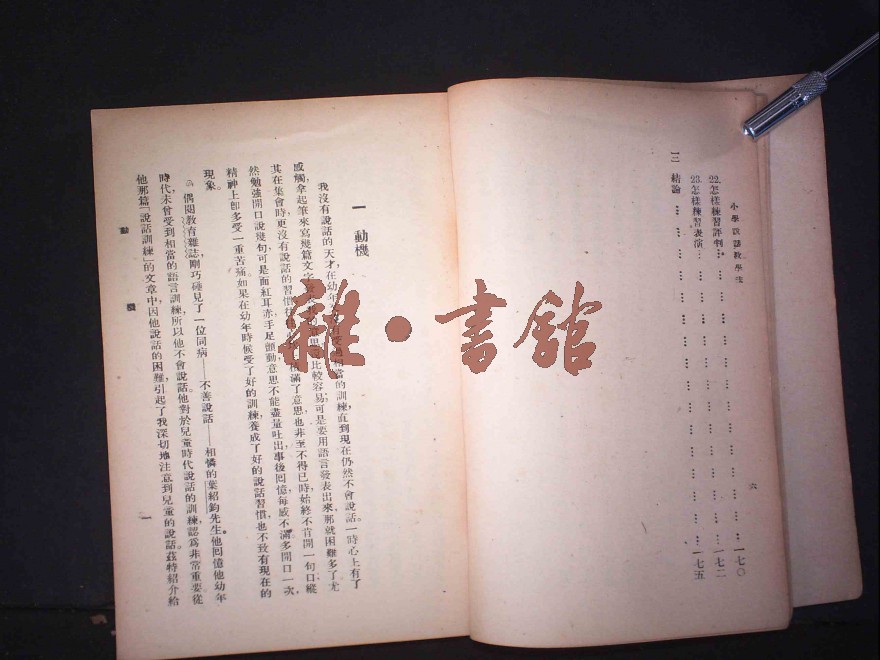 小學說話教學法
22.怎樣練習評判… … … … … … … … … … … 一七〇
23.怎樣練習表演… … … … … … … … … … … 一七二
三 結論 … … … … … … … … … … … 一七五
六
一 動機
我沒有說話的天才,在幼年 相當的訓練,直到現在仍然不會說話。一時心上有了
感觸,拿起筆來寫幾篇文字, 意思 比較容易;可是要用語言發表出來,那就困難多了。尤
其在集會時,更沒有說話的習慣, 滿了意思,也非至不得已時,始終不肯開一句口。縱
然勉強開口說幾句,可是面紅耳赤,手足顫動,意思不能盡量吐出。事後回憶,每感不滿,多開口一次,
精神上卽多受一重苦痛。如果在幼年時候受了好的訓練,養成了好的說話習慣,也不致有現在的
現象。
偶閱教育雜誌,剛巧碰見了一位同病——不善說話——相憐的葉紹鈞先生。他囘憶他幼年
時代,未曾受到相當的語言訓練,所以他不會說話。他對於兒童時代說話的訓練,認爲非常重要。從
他那篇「說話訓練」的文章中,因他說話的困難,引起了我深切地注意到兒童的說話。茲特紹介給
動 機
一
雜·書館